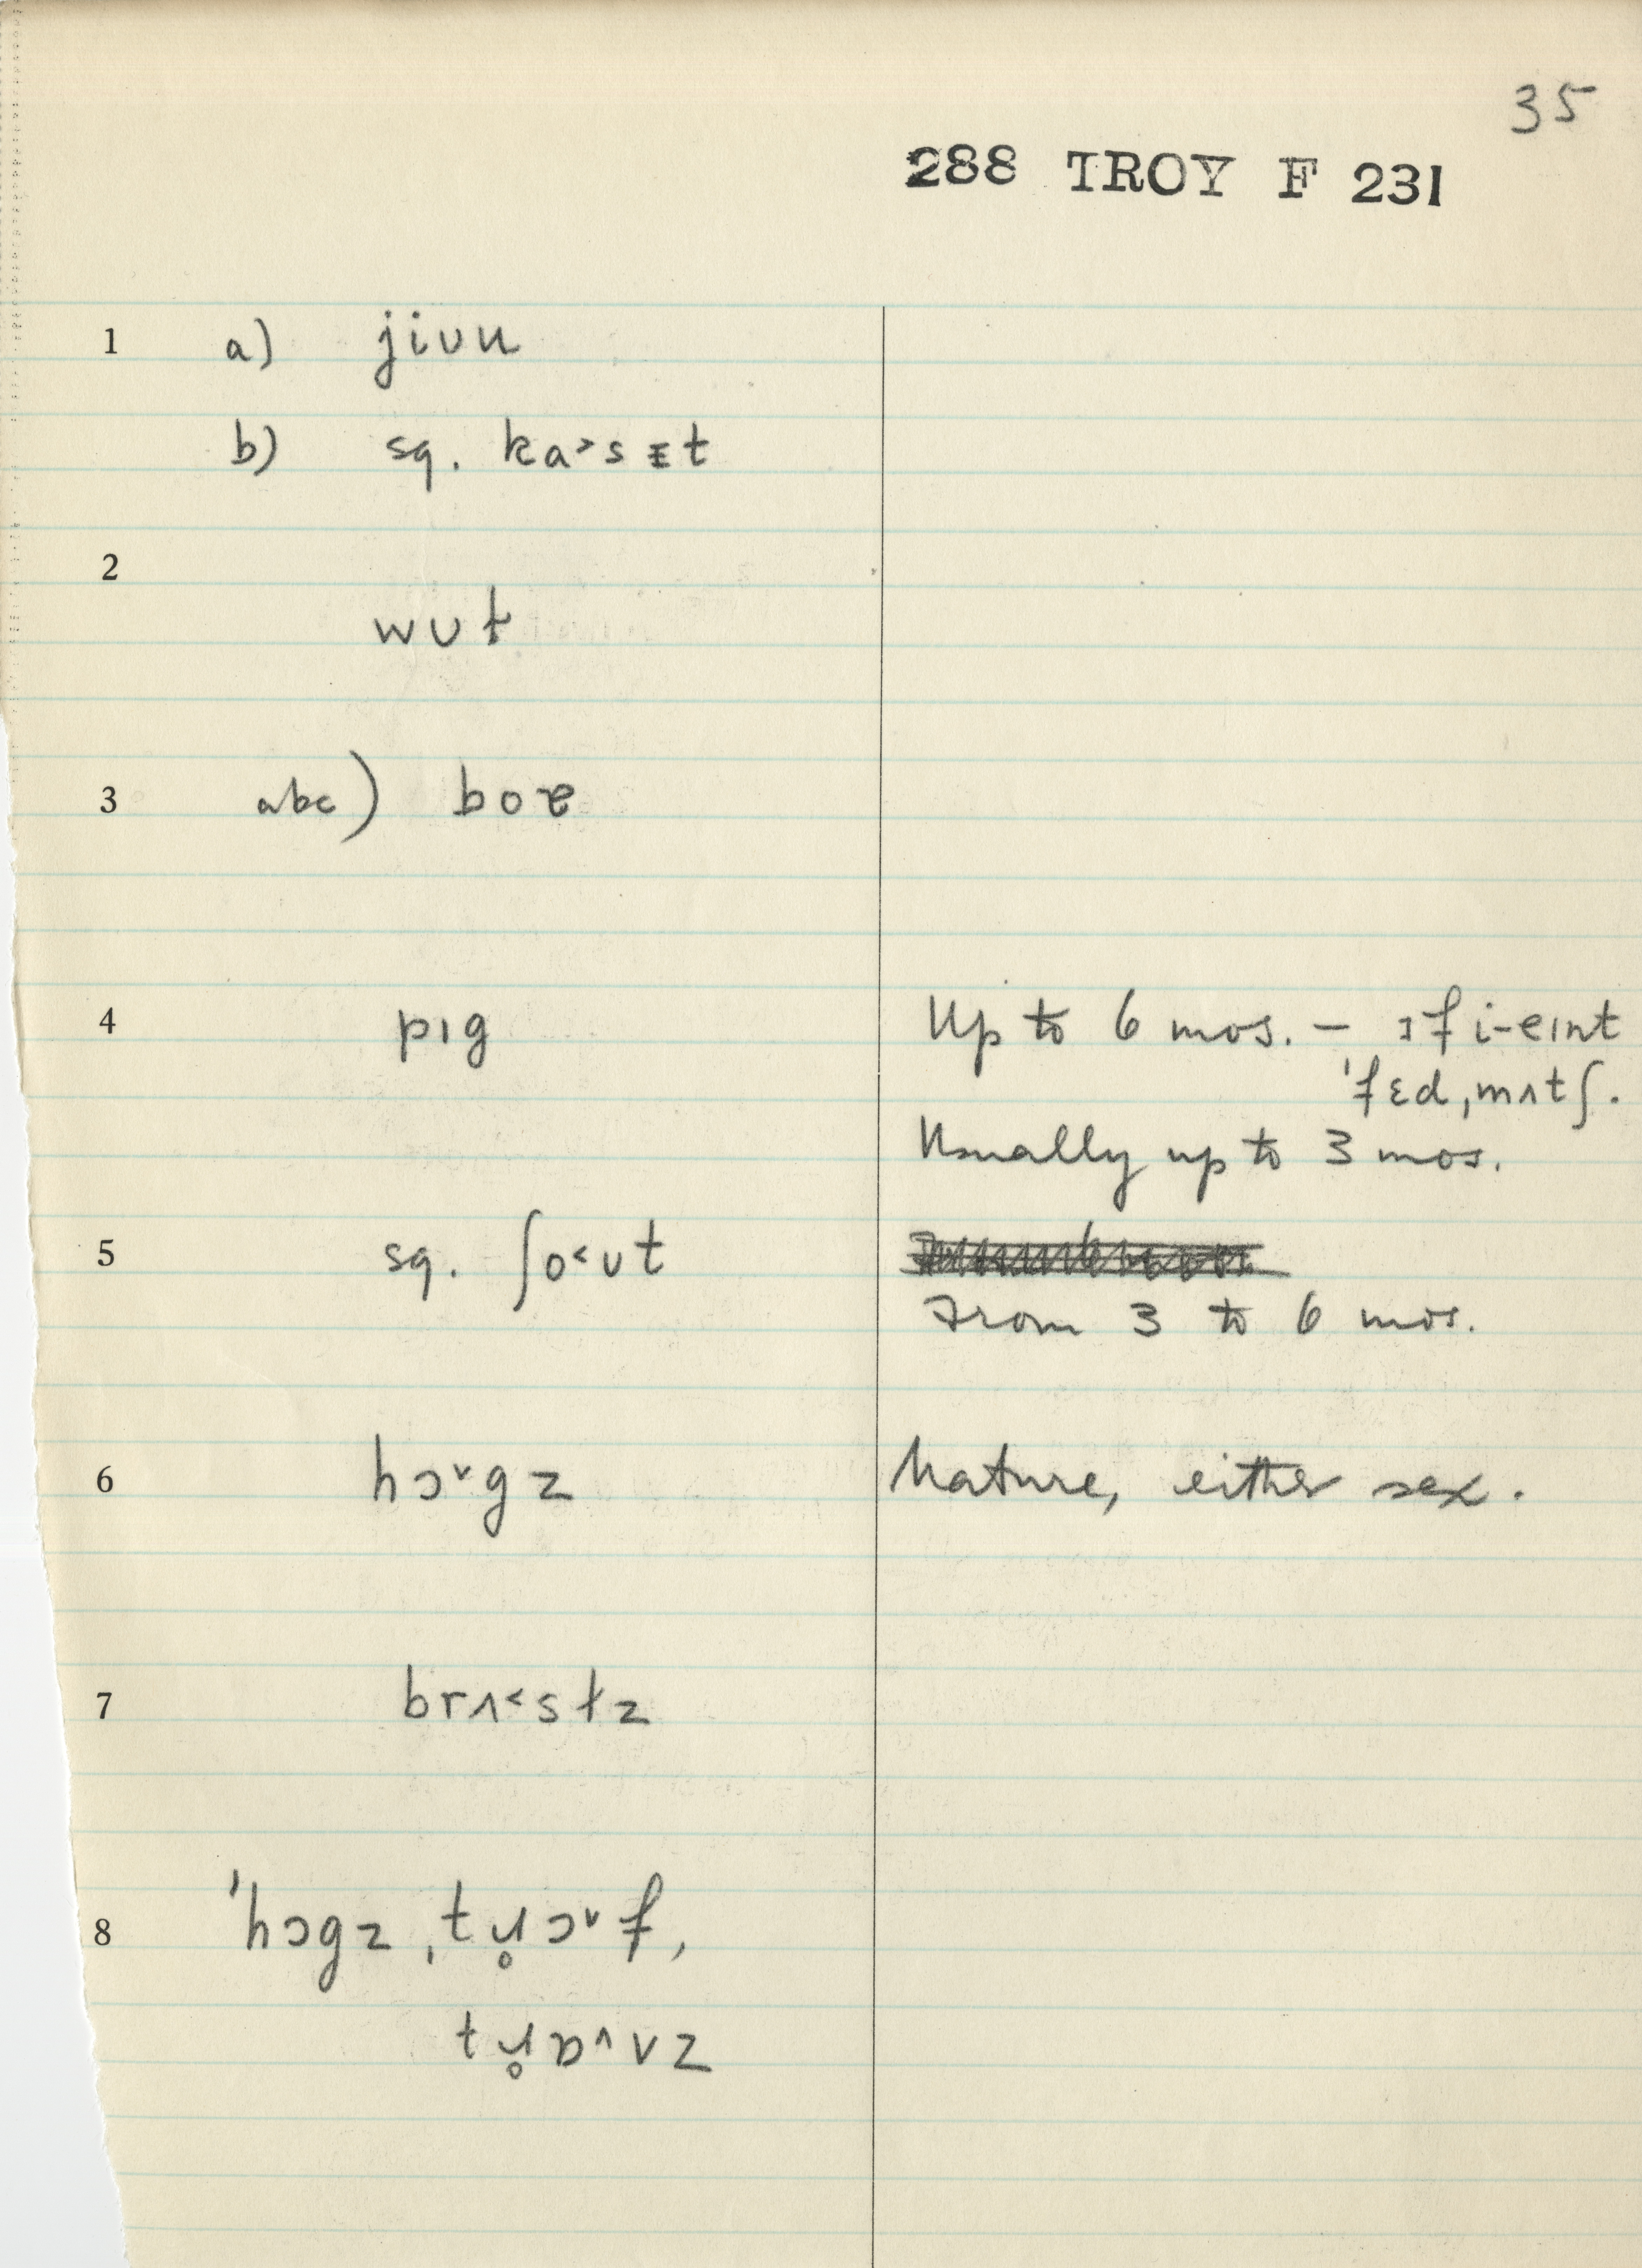 35
288 TROY F 231
1 a) jiuu
b) sq. ka˃sᵻt
2
wʊt
3 abc) boɐ
4 pɪg Up to 6 mos. – ɪf i-eɪnt
'fɛd,mʌtʃ.
Usually up to 3 mos.
5 sq. ʃo˂ʊt
From 3 to 6 mos.
6 hɔ˅gz Mature, either sex.
7 brʌ˂stz
8